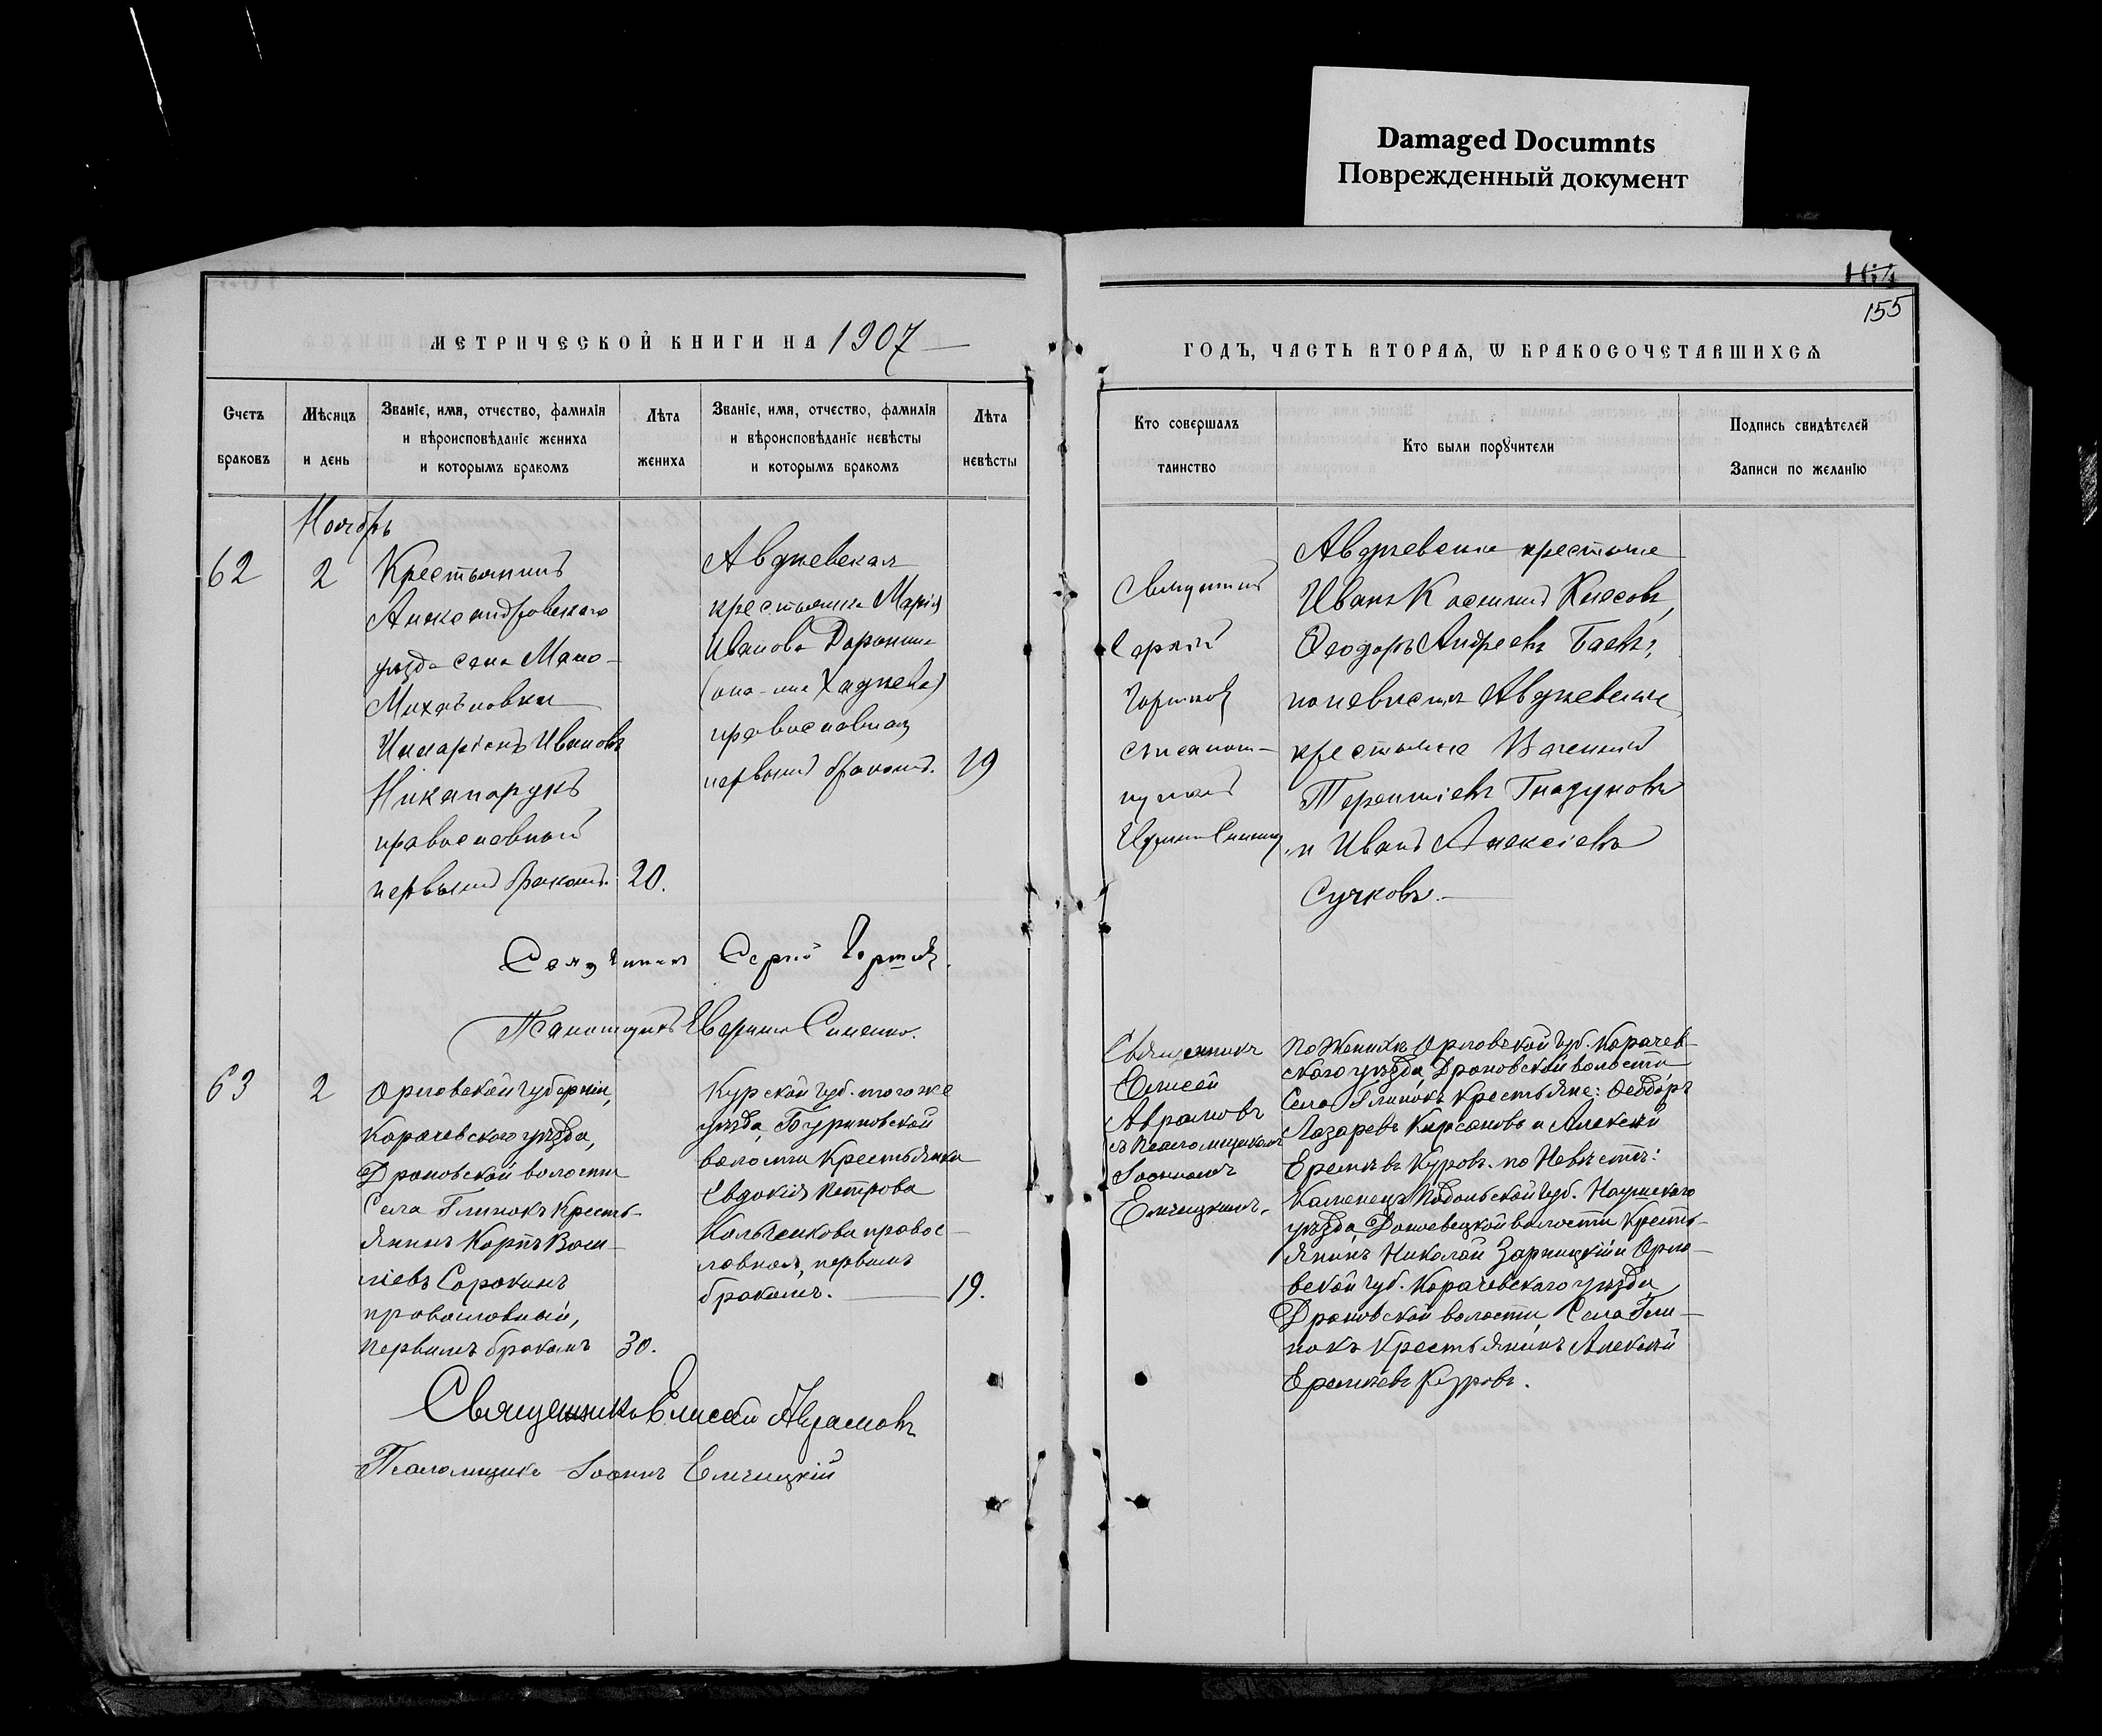 Damaged Documnts
Поврежденный документ
155
МЕТРИЧЕСКОЙ КНИГИ НА 1907
ГОДЪ, ЧАСТЬ ВТОРАѦ, Ѡ БРАКОСОЧЕТАВШИХСѦ
Счетъ браковъ
Мѣсяцъ и день
Званіе, имя, отчество, фамилія
и вѣроисповѣданіе жениха
и которымъ бракомъ
Лѣта жениха
Званіе, имя, отчество, фамилія
и вѣроисповѣданіе невѣсты
и которымъ бракомъ
Лѣта невѣсты
Кто совершалъ таинство
Кто были порꙋчители
Подпись свидѣтелей
Записи по желанію
Ноябрь
62
2
Крестьянинъ
Александровскаго
уѣзда села Мало-
Михайловки
Иларіонъ Ивановъ
православный
первымъ бракомъ.
20.
Авдѣевская
крестьянка Марія
Иванова Доронина
православная
первымъ бракомъ.
19
Священникъ
Сергій
Авдѣевскіе крестьяне
Иванъ
Ѳеодоръ Андреевъ Баевъ,
по невѣстѣ Авдѣевскіе
крестьяне Василій
Терентіевъ Гладуновъ
и Иванъ Алексіевъ
Сучковъ.
Священникъ Сергій
Псаломщикъ Синенко.
63
2
Орловской губерніи,
Карачевскаго уѣзда,
Дроновской волости
Села Глинокъ Кресть-
янинъ Карпъ Васи-
ліевъ Сорокинъ
православный,
первымъ бракомъ
30.
Курской губ. того же
уѣзда, Буриновской
волости Крестьянка
Евдокія Петрова
Колтенкова правос-
лавная, первымъ
бракомъ.
19.
Священникъ
Елисей
Аврамовъ
съ Псаломщикомъ
Іоанномъ
Елчицкимъ.
По Женихѣ Орловской губ. Карачев-
скаго уѣзда, Дроновской волости
Села Глинокъ Крестьяне: Ѳеодоръ
Лазаревъ Кирсановъ и Алексѣй
Еремѣевъ Куровъ. по Невѣстѣ:
Каменецъ Подольской губ.
уѣзда, волости Кресть-
янинъ Николай Зарницкій и Орло-
вской губ. Карачевскаго уѣзда
Дроновской волости, Села Гли-
нокъ Крестьянинъ Алексѣй
Еремѣевъ Куровъ.
Священникъ Елисей Аврамовъ
Псаломщикъ Іоаннъ Елчицкій